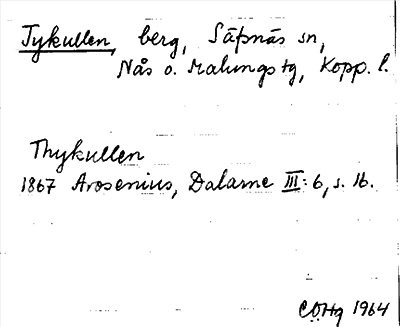 Tykullen, berg, Säfsnäs sn,
Nås o. Malungs tg, Kopp. l.
Thykullen
1867 Arosenius, Dalarne III: 6, s. 16.
CÖHg 1964